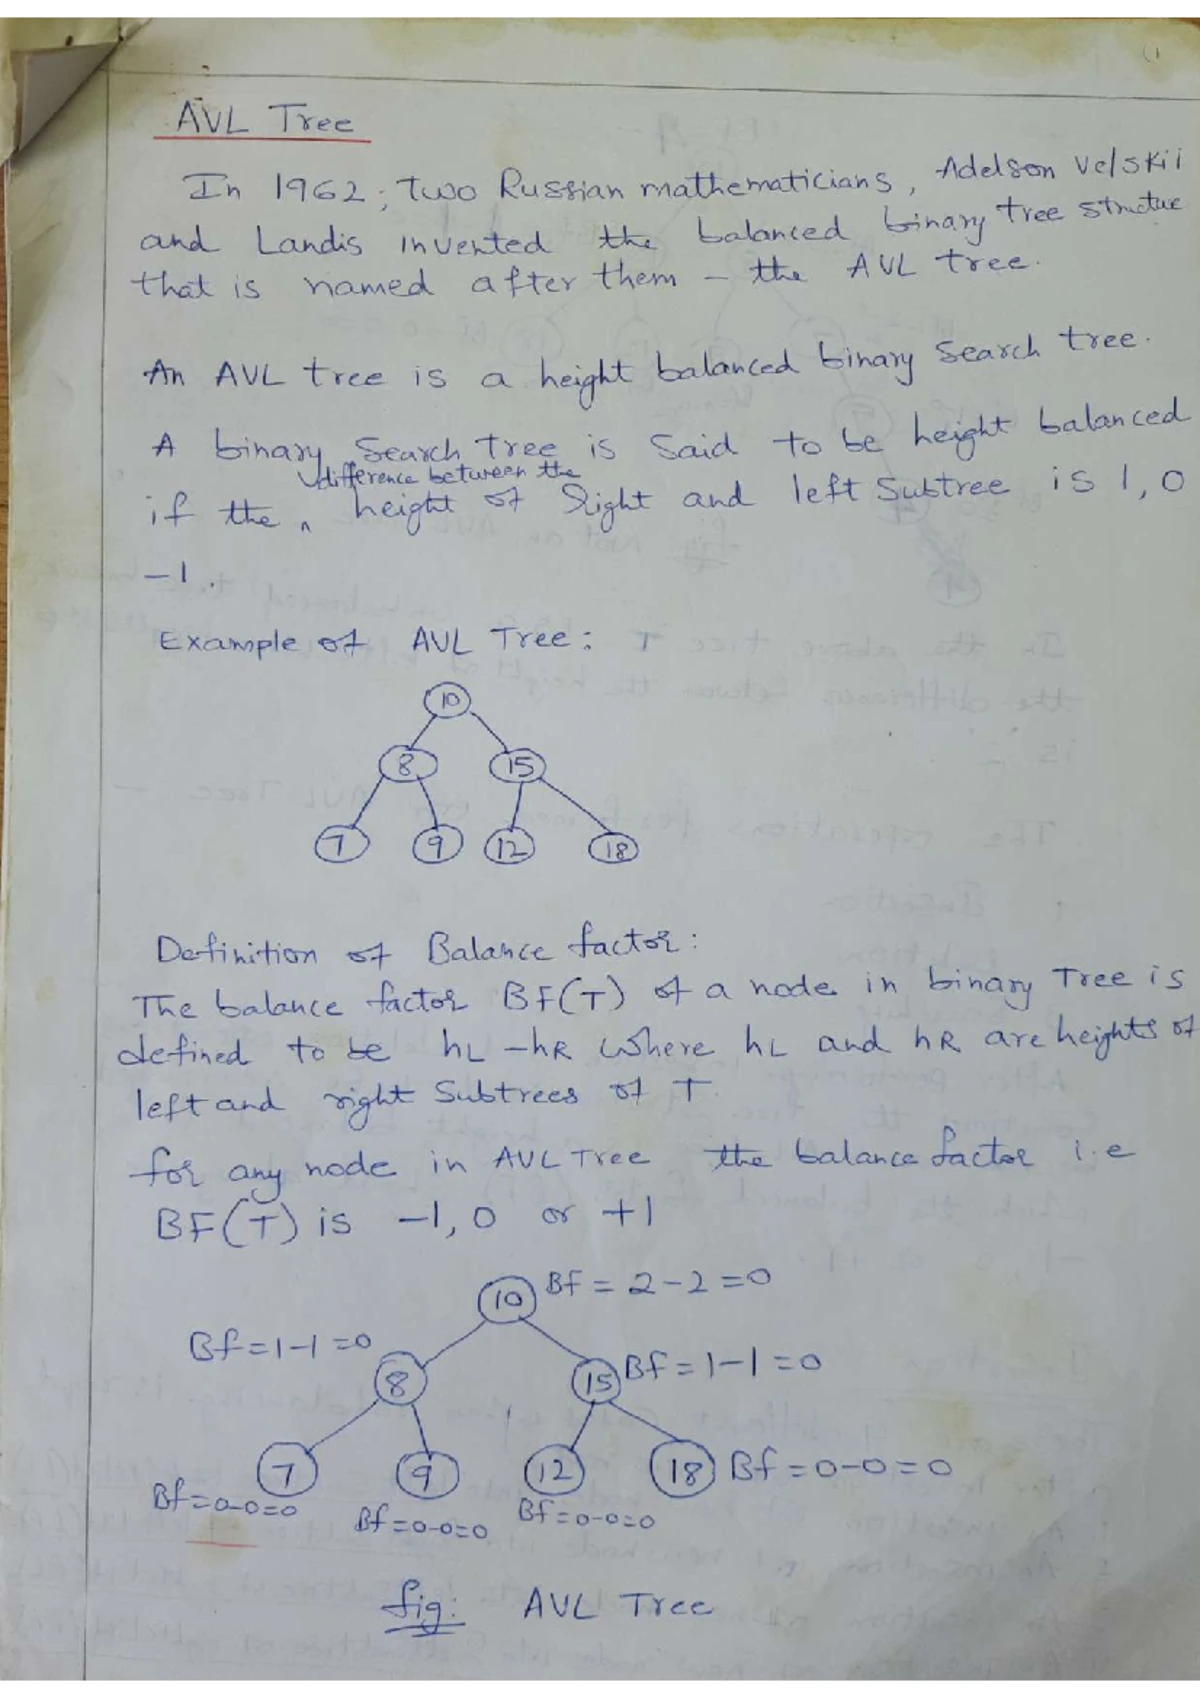 AVL Tree
In 1962, two Russian mathematicians, Adelson Velskii
and Landis invented the balanced binary tree structue
that is named after them - the AVL tree.
An AVL tree is a height balanced binary search tree.
A binary search tree is said to be height balanced
difference between the
if the ^ height of right and left subtree is 1, 0
-1.
Example of AVL Tree:
10
8 15
7 9 12 18
Definition of Balance factor:
The balance factor BF(T) of a node in binary Tree is
defined to be hL - hR where hL and hR are heights of
left and right subtrees of T.
for any node in AVL Tree the balance factor i.e
BF(T) is -1, 0 or +1
10 Bf = 2-2=0
Bf=1-1=0
8 15 Bf=1-1=0
7 9 12 18 Bf=0-0=0
Bf=0-0=0 Bf=0-0=0 Bf=0-0=0
fig: AVL Tree